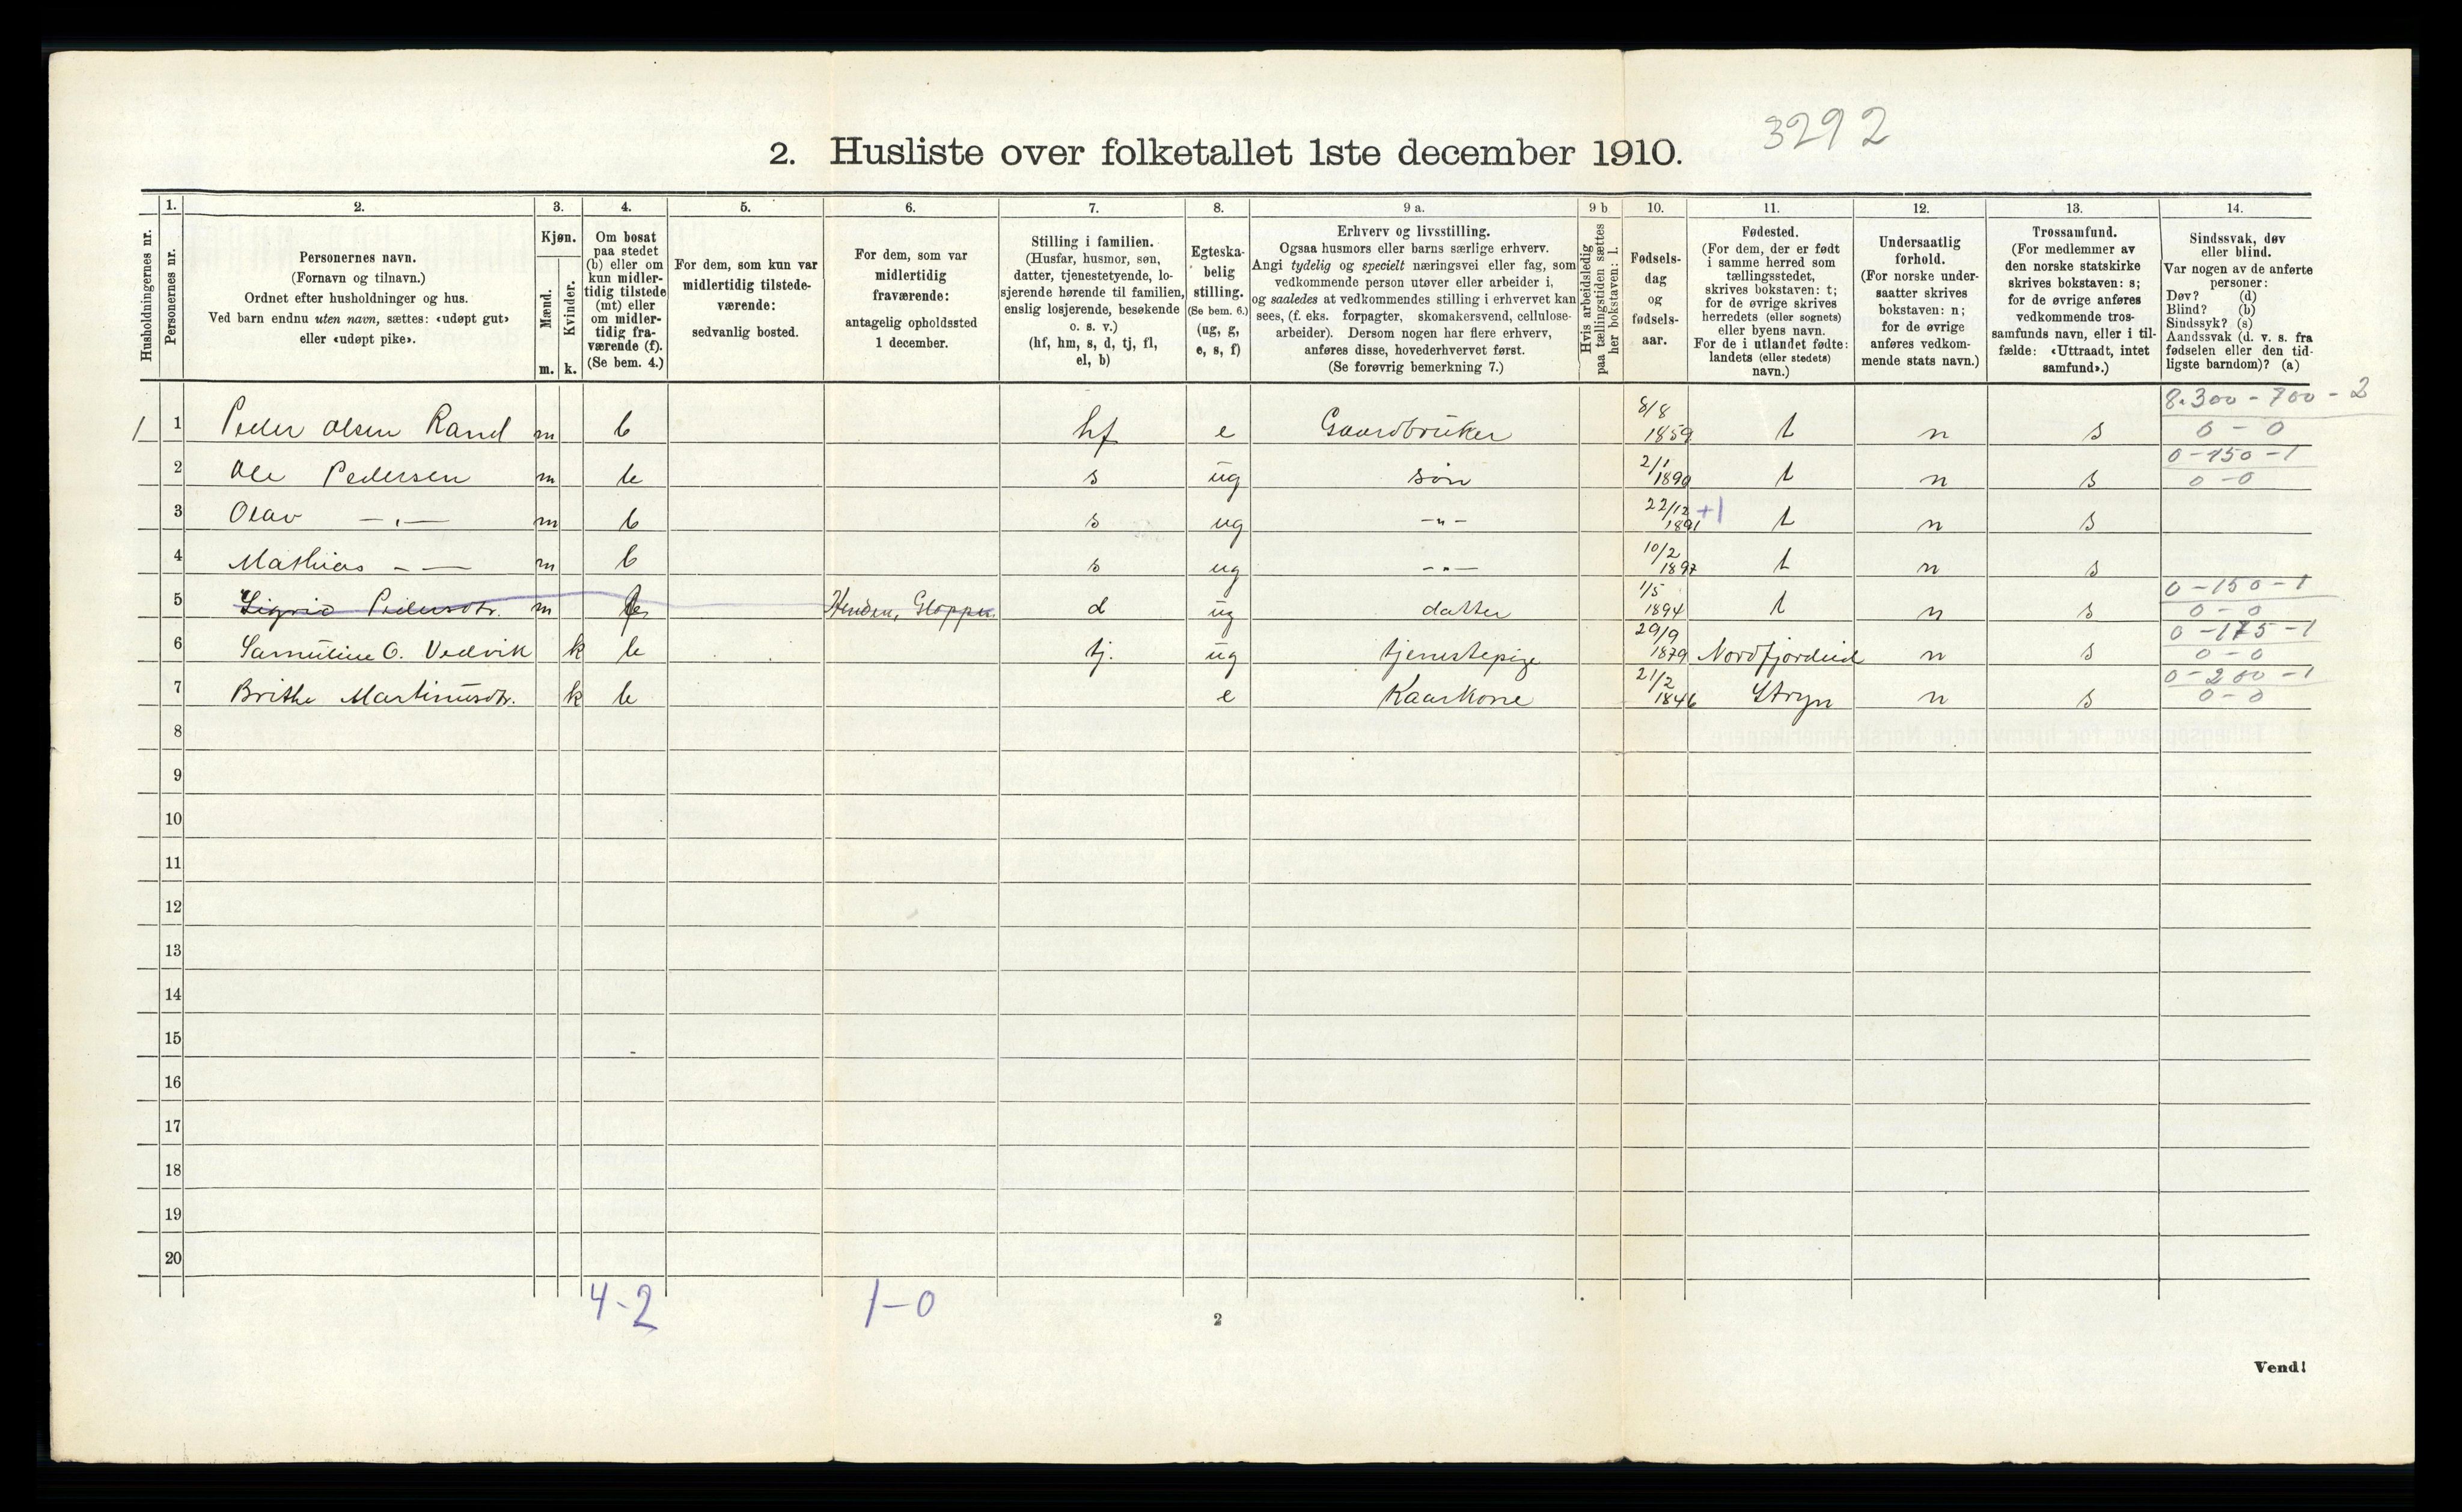 3292
2. Husliste over folketallet 1ste december 1910.
Husholdningernes nr.
1.
Personernes nr.
2.
Personernes navn.
(Fornavn og tilnavn.)
Ordnet efter husholdninger og hus.
Ved barn endnu uten navn, sættes: «udøpt gut»
eller «udøpt pike».
3.
Kjøn.
Mænd.
Kvinder.
m. k.
4.
Om bosat
paa stedet
(b) eller om
kun midler-
tidig tilstede
(mt) eller
om midler-
tidig fra-
værende (f).
(Se bem. 4.)
5.
For dem, som kun var
midlertidig tilstede-
værende:
sedvanlig bosted.
6.
For dem, som var
midlertidig
fraværende:
antagelig opholdssted
1 december.
7.
Stilling i familien.
(Husfar, husmor, søn,
datter, tjenestetyende, lo-
sjerende hørende til familien,
enslig losjerende, besøkende
o. s. v.)
(hf, hm, s, d, tj, fl,
el, b)
8.
Egteska-
belig
stilling.
(Se bem. 6.)
(ug, g,
e, s, f)
9 a.
Erhverv og livsstilling.
Ogsaa husmors eller barns særlige erhverv.
Angi tydelig og specielt næringsvei eller fag, som
vedkommende person utøver eller arbeider i,
og saaledes at vedkommendes stilling i erhvervet kan
sees, (f. eks. forpagter, skomakersvend, cellulose-
arbeider). Dersom nogen har flere erhverv,
anføres disse, hovederhvervet først.
(Se forøvrig bemerkning 7.)
9 b
Hvis arbeidsledig
paa tællingstiden sættes
her bokstaven: l.
10.
Fødsels-
dag
og
fødsels-
aar.
11.
Fødested.
(For dem, der er født
i samme herred som
tællingsstedet,
skrives bokstaven: t;
for de øvrige skrives
herredets (eller sognets)
eller byens navn.
For de i utlandet fødte:
landets (eller stedets)
navn.)
12.
Undersaatlig
forhold.
(For norske under-
saatter skrives
bokstaven: n;
for de øvrige
anføres vedkom-
mende stats navn.)
13.
Trossamfund.
(For medlemmer av
den norske statskirke
skrives bokstaven: s;
for de øvrige anføres
vedkommende tros-
samfunds navn, eller i til-
fælde: «Uttraadt, intet
samfund».)
14.
Sindssvak, døv
eller blind.
Var nogen av de anførte
personer:
Døv? (d)
Blind? (b)
Sindssyk? (s)
Aandssvak (d. v. s. fra
fødselen eller den tid-
ligste barndom)? (a)
1 1 Peder Olsen Rand m b hf e Gaardbruker 8/8 1859 t n s 8.300 - 700 - 2 0 - 0
2 Ole Pedersen m b s ug søn 2/1 1890 t n s 0 - 150 - 1 0 - 0
3 Olav — „ — m b s ug - „ - 22/12 1891 +1 t n s
4 Mathias - — m b s ug - „ - 10/2 1897 t n s
5 Sigrid Pedersdtr. m Henden, Gloppen d ug datter 1/5 1894 t n s 0 - 150 - 1 0 - 0
6 Samuline O. Vedvik k b tj. ug tjenestepige 29/9 1879 Nordfjordeid n s 0 - 175 - 1 0 - 0
7 Brithe Martinusdtr. k b e Kaarkone 21/2 1846 Stryn n s 0 - 200 - 1 0 - 0
8
9
10
11
12
13
14
15
16
17
18
19
20
4 - 2 1 - 0
2
Vend!